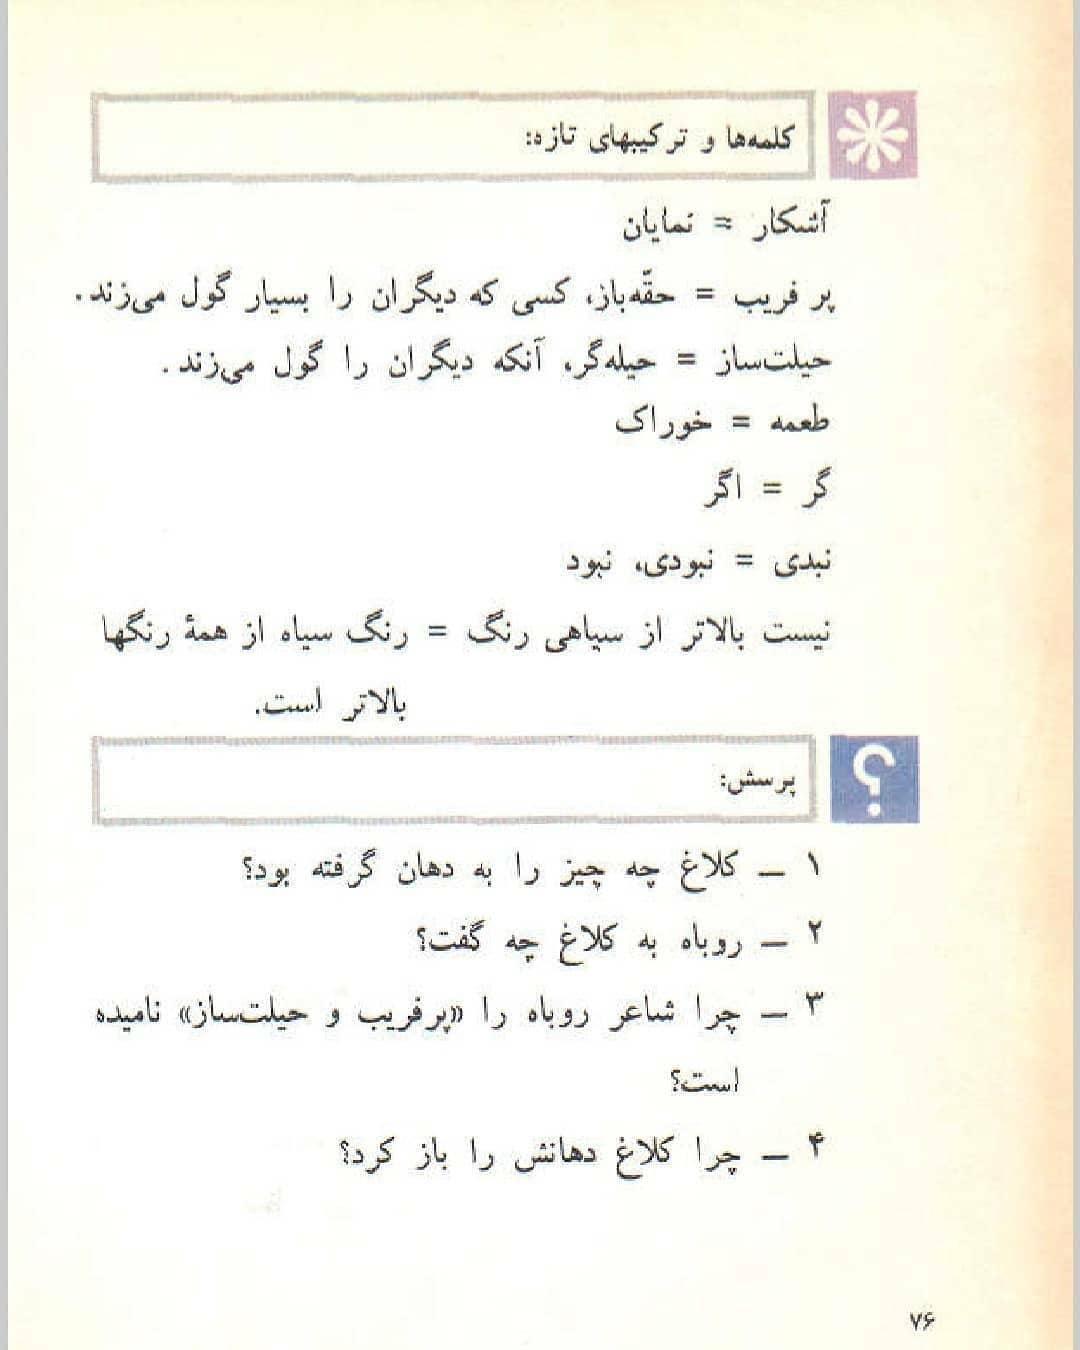 کلمه‌ها و ترکیبهای تازه:
آشکار = نمایان
پر فریب = حقّه‌باز، کسی که دیگران را بسیار گول می‌زند.
حیلت‌ساز = حیله‌گر، آنکه دیگران را گول می‌زند.
طعمه = خوراک
گر = اگر
نبدی = نبودی، نبود
نیست بالاتر از سیاهی رنگ = رنگ سیاه از همهٔ رنگها
بالاتر است.
؟
پرسش:
۱ ــ کلاغ چه چیز را به دهان گرفته بود؟
۲ ــ روباه به کلاغ چه گفت؟
۳ ــ چرا شاعر روباه را «پرفریب و حیلت‌ساز» نامیده
است؟
۴ ــ چرا کلاغ دهانش را باز کرد؟
۷۶